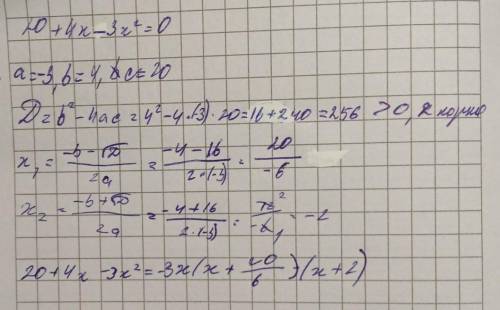 20+4x-3x²=0
a=-3, b=4, c=20
D=b²-4ac=4²-4·(-3)·20=16+240=256 >0, 2 корня
x₁ = (-b-√D)/2a = (-4-16)/2·(-3) = 20/-6
x₂ = (-b+√D)/2a = (-4+16)/2·(-3) = 12²/-6₁ = -2
20+4x-3x²=-3x(x+20/6)(x+2)